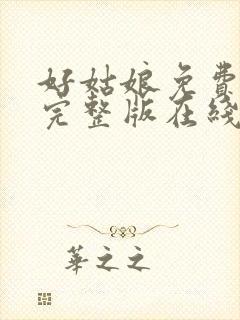 好姑娘免费
完整版在线
華之之